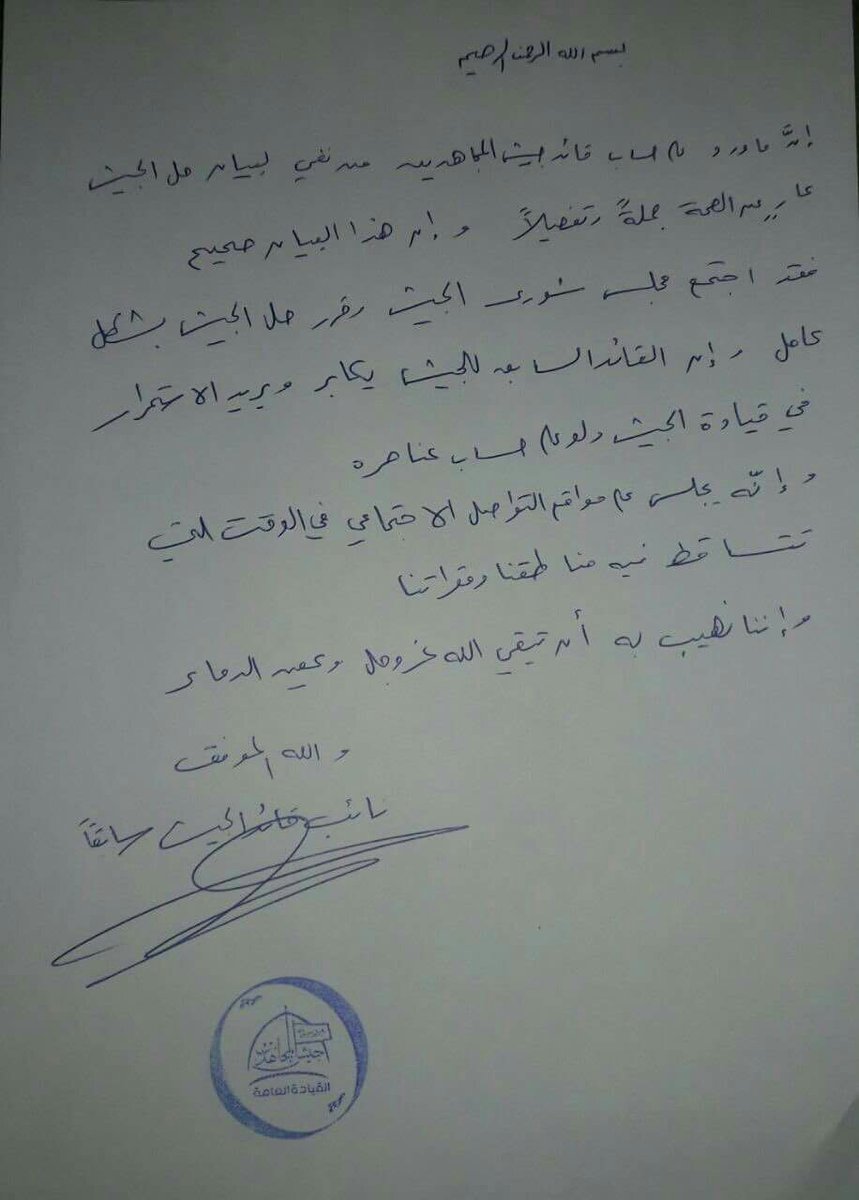 بسم الله الرحمن الرحيم
إنَّ ما ورد على حساب قائد جيش المجاهدين من نفي لبيان حل الجيش
عارٍ عن الصحة جملةً وتفصيلاً وإن هذا البيان صحيح
فقد اجتمع مجلس شورى الجيش وقرر حل الجيش بشكل
كامل وإن القائد السابق للجيش يكابر ويريد الاستمرار
في قيادة الجيش ولو على حساب عناصره
وإنّه يجلس على مواقع التواصل الاجتماعي في الوقت الذي
تتساقط فيه مناطقنا ومقراتنا
وإننا نهيب به أن يتقي الله عز وجل ويحقن الدماء
والله الموفق
نائب قائد الجيش سابقاً
جيش المجاهدين
القيادة العامة